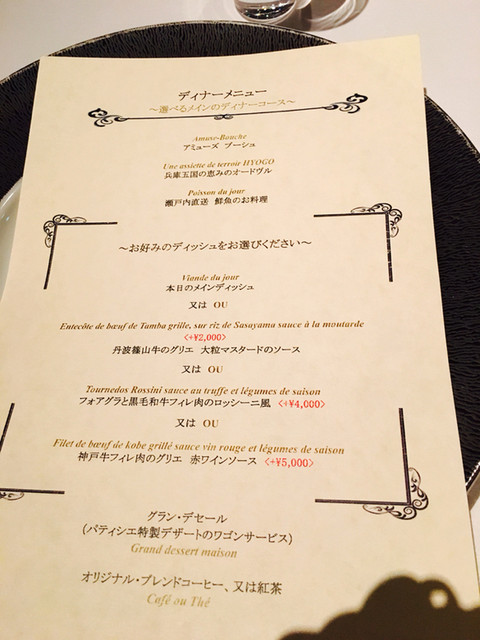 ディナーメニュー
～選べるメインのディナーコース～
Amuse-Bouche
アミューズ ブーシュ
Une assiette de terroir HYOGO
兵庫五国の恵みのオードヴル
Poisson du jour
瀬戸内直送 鮮魚のお料理
～お好みのディッシュをお選びください～
Viande du jour
本日のメインディッシュ
又は OU
Entecôte de bœuf de Tamba grille, sur riz de Sasayama sauce à la moutarde
<+¥2,000>
丹波篠山牛のグリエ 大粒マスタードのソース
又は OU
Tournedos Rossini sauce au truffe et légumes de saison
フォアグラと黒毛和牛フィレ肉のロッシーニ風 <+¥4,000>
又は OU
Filet de bœuf de kobe grillé sauce vin rouge et légumes de saison
神戸牛フィレ肉のグリエ 赤ワインソース <+¥5,000>
グラン・デセール
(パティシエ特製デザートのワゴンサービス)
Grand dessert maison
オリジナル・ブレンドコーヒー、又は紅茶
Café ou Thé